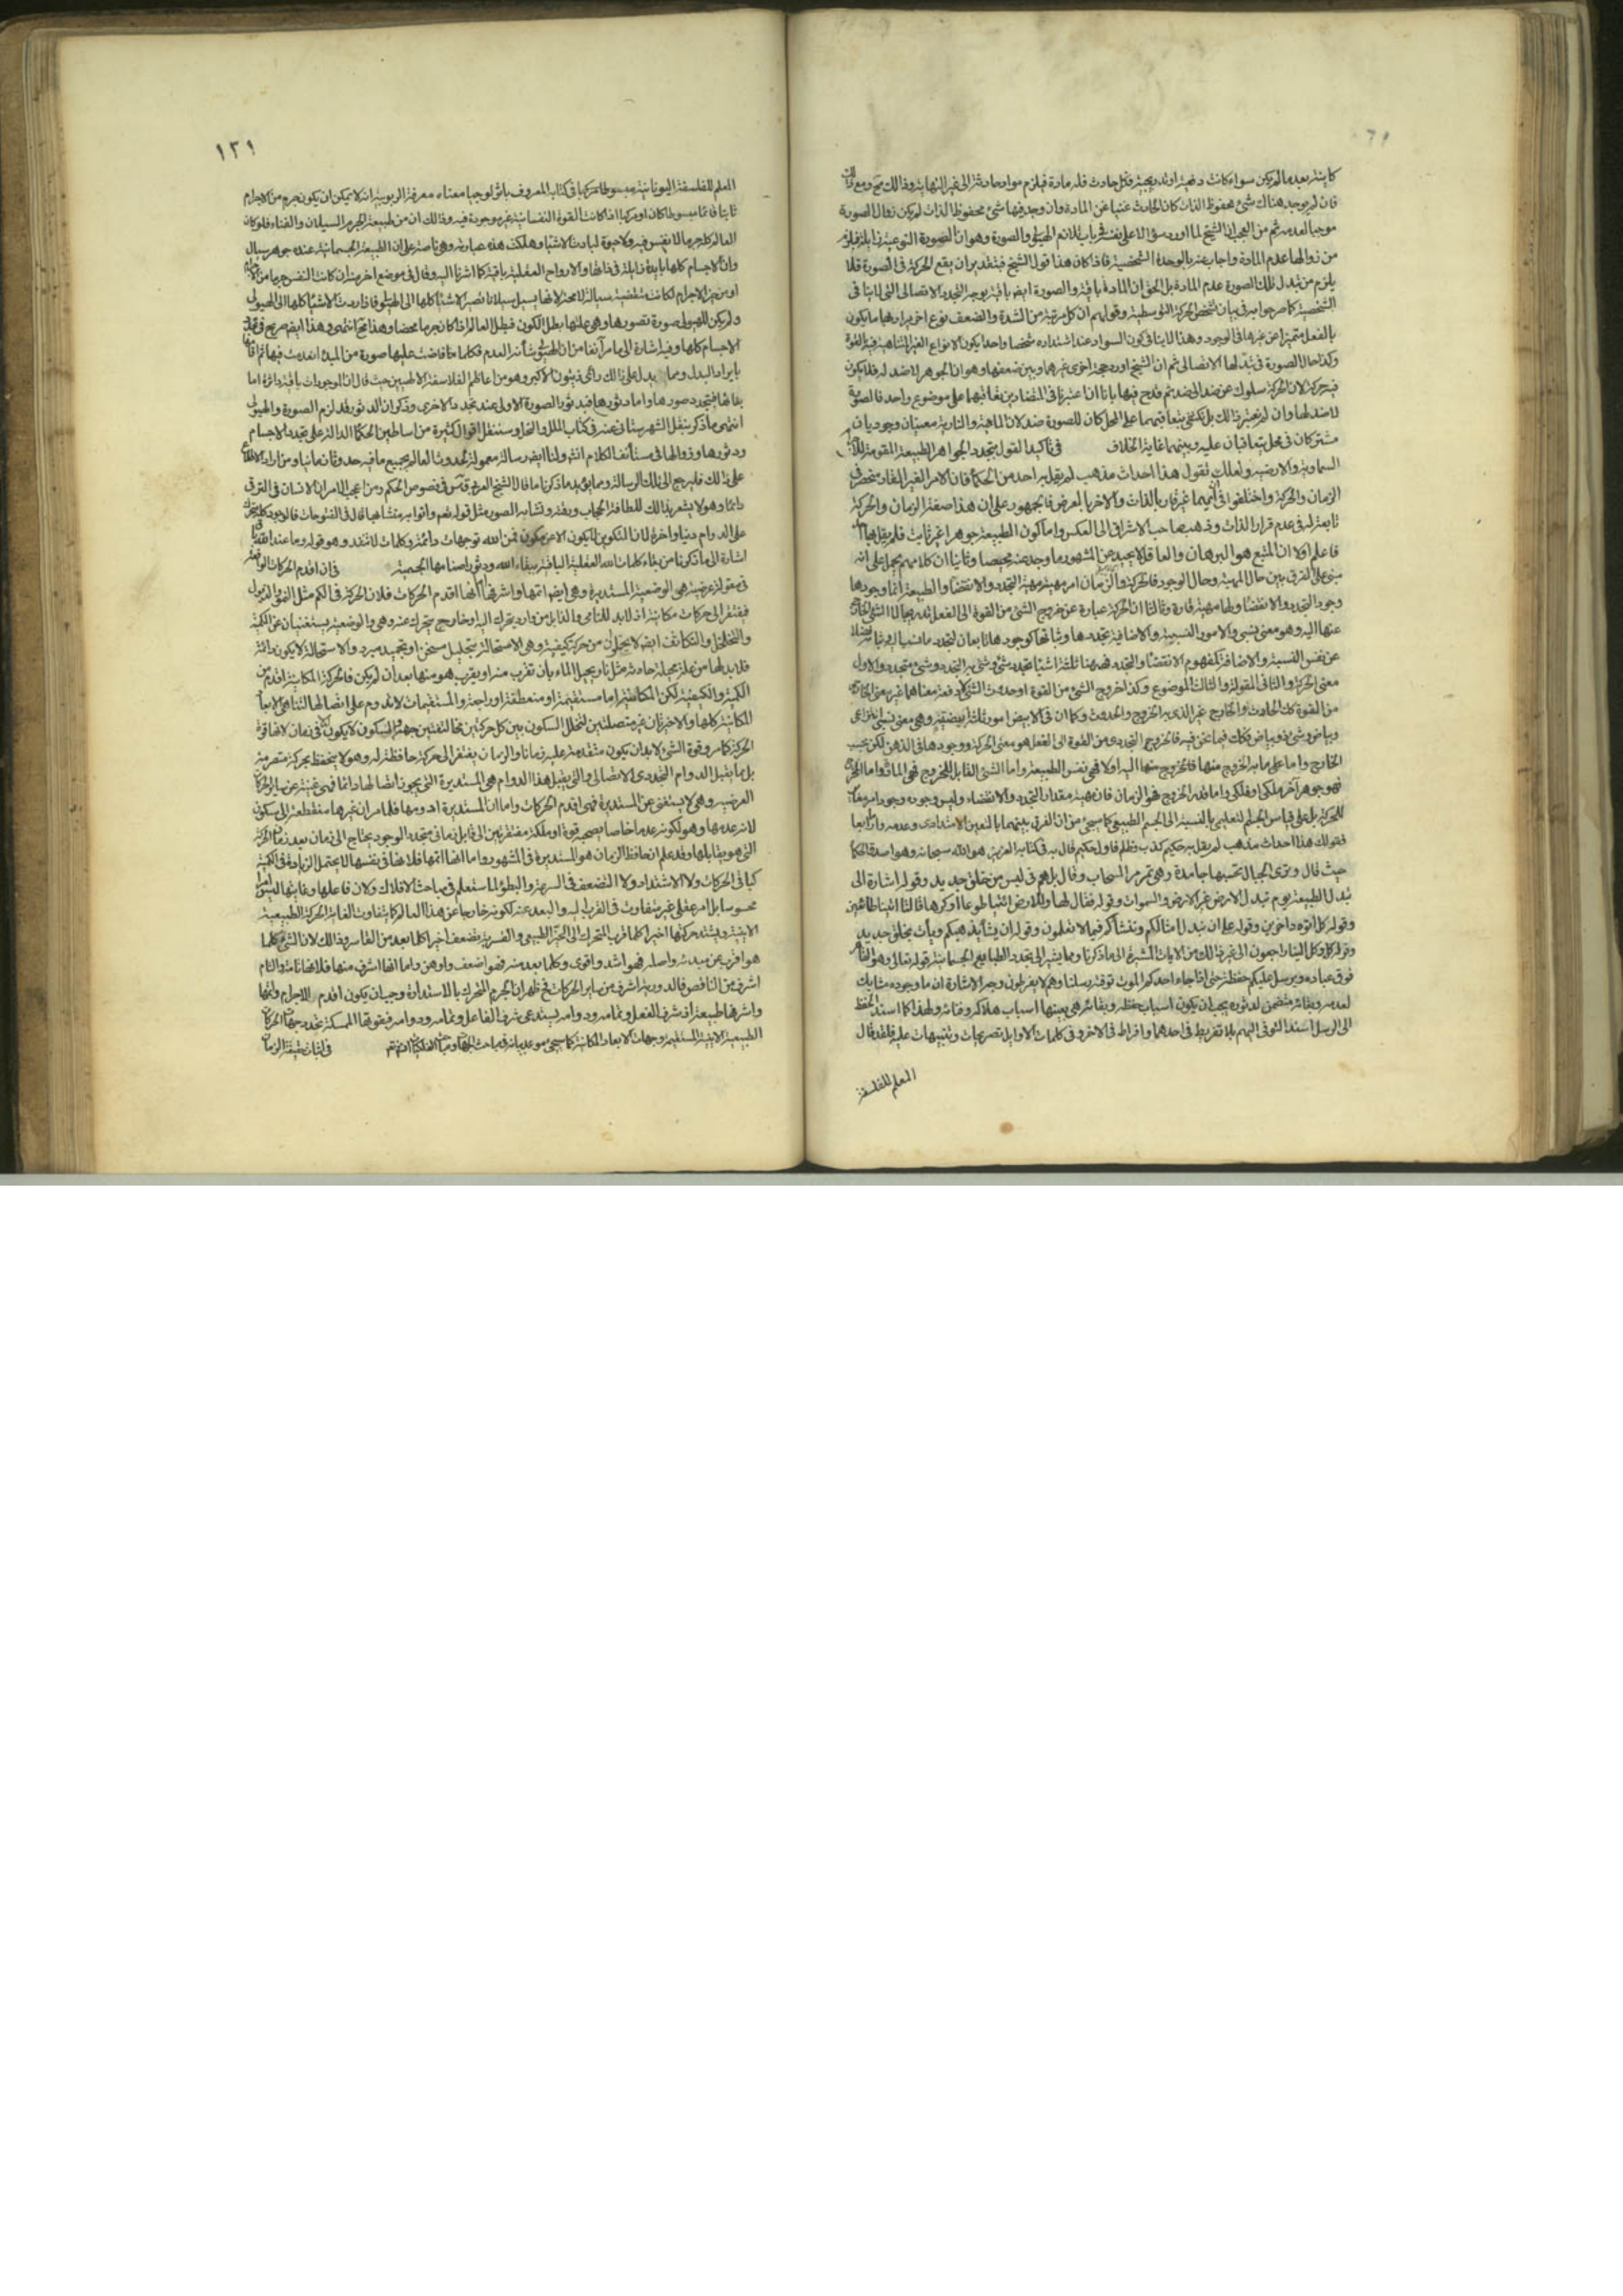 كاينة بعد ما لم يكن سواء كانت دفعية او تدريجية فكل حادث فله مادة فيلزم مواد حادثة الى غير النهاية وذلك مح ومع ذلك
فان لم يوجد هناك شئ محفوظ الذات كان الحادث غنيا عن المادة وان وجد فيها شئ محفوظ الذات لم يكن زوال الصورة
موجبا لعدمه ثم من العجب ان الشيخ لما اورد سؤالا على نفسه في باب تلازم الهيولى والصورة وهو ان الصورة النوعية زايلة فلزم
من زوالها عدم المادة واجاب عنه بالوحدة الشخصية فاذا كان هذا قول الشيخ فبتقدير ان يقع الحركة في الصورة فلا
يلزم من تبدل تلك الصورة عدم المادة بل الحق ان المادة باقية والصورة ايض باقية بوجه التجدد الاتصالى التى لا ينافى
الشخصية كما صرحوا به في بيان تشخص الحركة التوسطية وقولهم ان كل مرتبة من الشدة والضعف نوع اخر مرادهم ما يكون
بالفعل متميزا عن غيرها فى الوجود وهذا لا ينافى كون السواد عند اشتداده شخصا واحدا يكون الانواع الغير المتناهية فيه بالقوة
وكذا حال الصورة فى تبدلها الاتصالى ثم ان الشيخ اورد حجة اخرى غيرهما وبين ضعفها وهو ان الجوهر لا ضد له فلا يكون
فيه حركة لان الحركة سلوك عن ضد الى ضد ثم قدح فيها بانا ان اعتبرنا فى المتضادين تعاقبهما على موضوع واحد فالصورة
لا ضد لها وان لم نعتبر ذلك بل نكتفى بتعاقبهما على المحل كان للصورة ضد لان المائية والنارية معنيان وجوديان
مشتركان فى محل يتعاقبان عليه وبينهما غاية الخلاف في تأكيد القول بتجدد الجواهر الطبيعية المقومة للاجرام
السماوية والارضية ولعلك تقول هذا احداث مذهب لم يقل به احد من الحكماء فان الامر الغير القار منحصر فى
الزمان والحركة واختلفوا فى ايهما غير قار بالذات والاخر بالعرض فالجمهور على ان هذا صفة الزمان والحركة
تابعة له فى عدم قرار الذات وذهب صاحب الاشراق الى العكس واما كون الطبيعة جوهرا غير ثابت فلم يقل به احد
فاعلم اولا ان المتبع هو البرهان والعاقل لا يحيد عن المشهور ما وجد عنه محيصا وثانيا ان كلامهم يحمل على انه
مبنى على الفرق بين حال المهية وحال الوجود فالحركة والزمان امر مهيته مهية التجدد والانقضاء والطبيعة انما وجودها
وجود التجدد والانقضاء ولها مهية قارة وثالثا ان الحركة عبارة عن خروج الشئ من القوة الى الفعل تدريجا لا الشئ الخارج
عنها اليه وهو معنى نسبى والامور النسبية والاضافية تجددها وثباتها كوجودها تابعان لتجدد ما نسب اليه وثباته فضلا
عن نفس النسبة والاضافة كمفهوم الانقضاء والتجدد فههنا ثلثة اشياء تجدد شئ وشئ به التجدد وشئ متجدد والاول
معنى الحركة والثانى المقولة والثالث الموضوع وكذا خروج الشئ من القوة او حدوث الشئ لا دفعة معناها غير معنى الخارج
من القوة كك الحادث والخارج غير الذى به الخروج والحدوث وكما ان فى الابيض امور ثلثة ابيضية وهى معنى نسبى انتزاعى
وبياض وشئ ذو بياض فكك فيما نحن فيه فالخروج التجددى من القوة الى الفعل هو معنى الحركة ووجودها فى الذهن لكن بحسب
الخارج واما على ما به الخروج منها فالخروج منها اليه اولا فهى نفس الطبيعة واما الشئ القابل للخروج فهى المادة واما المخرج
فهو جوهر آخر ملكى او فلكى واما قدر الخروج فهو الزمان فان مهيته مقدار التجدد والانقضاء وليس وجوده وجود امر مغاير
للحركة بل على قياس الجسم التعليمى بالنسبة الى الجسم الطبيعى كما سيجئ من ان الفرق بينهما بالتعين الامتدادى وعدمه ورابعا
فقولك هذا احداث مذهب لم يقل به حكيم كذب وظلم فاول حكيم قال به فى كتابه العزيز هو الله سبحانه وهو اصدق الحكماء
حيث قال وترى الجبال تحسبها جامدة وهى تمر مر السحاب وقال بل هم فى لبس من خلق جديد وقوله اشارة الى
تبدل الطبيعة يوم تبدل الارض غير الارض والسموات وقوله فقال لها وللارض ائتيا طوعا او كرها قالتا اتينا طائعين
وقوله كل اتوه داخرين وقوله على ان نبدل امثالكم وننشأكم فيما لا تعلمون وقوله ان يشأ يذهبكم ويأت بخلق جديد
وقوله كل الينا راجعون الى غير ذلك من الايات المشيرة الى ما ذكرنا ومما يشير الى تجدد الطبايع الجسمانية قوله تعالى وهو القاهر
فوق عباده ويرسل عليكم حفظة حتى اذا جاء احدكم الموت توفته رسلنا وهم لا يفرطون وجه الاشارة ان ما وجوده مشابك
لعدمه وبقائه متضمن لدثوره يجب ان يكون اسباب حفظه وبقائه هى بعينها اسباب هلاكه وفنائه ولهذا كما اسند الحفظ
الى الرسل اسند التوفى اليهم بلا تفريط فى احدهما وافراط فى الاخر وفى كلمات الاوايل تصريحات وتنبيهات عليه فلقد قال
المعلم للفلسفة
١٣١
المعلم للفلسفة اليونانية فى كتابه المعروف باثولوجيا معناه معرفة الربوبية انه لا يمكن ان يكون جرم من الاجرام
ثابتا قائما مبسوطا كان او مركبا اذا كانت القوة النفسانية غير موجودة فيه وذلك ان من طبيعة الجرم السيلان والفناء فلو كان
العالم كله جرما لا نفس فيه ولا حيوة لبادت الاشياء وهلكت هذه عبارته وهى ناصة على ان الطبيعة الجسمانية عنده جوهر سيال
وان الاجسام كلها بايدة زايلة فى ذاتها والارواح العقلية باقية كما اشرنا اليه وقال فى موضع اخر منه ان كانت النفس جرما من الاجرام
او من حيز الاجرام لكانت متقضية سيالة لا محة لانها تسيل سيلانا تصير الاشياء كلها الى الهيولى فاذا ردت الاشياء كلها الى الهيولى
ولم يكن للهيولى صورة تصورها وهى علتها بطل الكون فبطل العالم اذا كان جرما محضا وهذا مح انتهى وهذا ايض صريح فى تجدد
الاجسام كلها وفيه اشارة الى ما مر آنفا من ان الهيولى شأنه العدم فكلما فاضت عليها صورة من المبدء انعدمت فيها ثم اقامها
بايراد البدل ومما يدل على ذلك رأى زينون الاكبر وهو من اعاظم الفلاسفة الالهيين حيث قال ان الموجودات باقية داثرة اما
بقاؤها فبتجدد صورها واما دثورها فبدثور الصورة الاولى عند تجدد الاخرى وذكر ان الدثور قد لزم الصورة والهيولى
انتهى ما ذكره بنقل الشهرستانى عنه فى كتاب الملل والنحل وسننقل اقوال كثيرة من اساطين الحكماء الدالة على تجدد الاجسام
ودثورها وزوالها فى مستأنف الكلام انش ولنا ايض رسالة معمولة لحدوث العالم بجميع ما فيه حدوثا زمانيا ومن اراد الاطلاع
على ذلك فليرجع الى تلك الرسالة ومما يؤيد ما ذكرنا ما قال الشيخ العربى قدس فى فصوص الحكم ومن اعجب الامر ان الانسان فى الترقى
دائما وهو لا يشعر بذلك للطافة الحجاب ورقته وتشابه الصور مثل قوله تعم واتوا به متشابها وقال فى الفتوحات فالوجود كله متحرك
على الدوام دنيا واخرة لان التكوين لا يكون الا عن مكون فمن الله توجهات دائمة وكلمات لا تنفد وهو قوله وما عند الله باق
اشارة الى ما ذكرنا من بقاء كلمات الله العقلية الباقية ببقاء الله ودثور اصنامها الجسمية في ان اقدم الحركات الواقعة
فى مقولة عرضية هى الوضعية المستديرة وهى ايض اتمها واشرفها اما انها اقدم الحركات فلان الحركة فى الكم مثل النمو والذبول
فيفتقر الى حركات مكانية اذ لا بد للنامى والذابل من وارد يتحرك اليه وخارج يتحرك عنه وهى والوضعية يستغنيان عن الكمية
والتخلخل والتكاثف ايض لا يخلوان من حركة كيفية وهى الاستحالة بتحليل مسخن او تجميد مبرد والاستحالة لا يكون دائمة
فلا بد لها من علة محيلة حادثة مثل نار يحيل الماء بان تقرب منه او يقرب هو منها بعد ان لم يكن فالحركة المكانية اقدم من
الكمية والكيفية لكن المكانية اما مستقيمة او منعطفة او راجعة والمستقيمات لا تدوم على اتصالها لتناهى الابعاد
المكانية كلها والاخريان غير متصلتين لتخلل السكون بين كل حركتين متخالفتين جهة والسكون لا يكون الا فى زمان لانه قوة
الحركة كما مر وقوة الشئ لا بد ان يكون متقدمة عليه زمانا والزمان يفتقر الى حركة حافظة له وهو لا ينحفظ بحركة متصرمة
بل ما يقبل الدوام التجددى الاتصالى والتى يقبل هذا الدوام هى المستديرة التى يجوز اتصالها دائما فهى غنية عن ساير الحركات
العرضية وهى لا يستغنى عن المستديرة فهى اقدم الحركات واما ان المستديرة ادومها فلما مر ان غيرها منقطعة الى سكون
لانه عدمها وهو لكونه عدما خاصا يصحبه قوة او ملكة مفتقرتين الى قابل زمانى متجدد الوجود يحتاج الى زمان بعد زمان الحركة
التى هو يقابلها وقد علم ان حافظ الزمان هو المستديرة فى المشهور واما انها اتمها فلانها فى نفسها لا يحتمل الزيادة فى الكمية
كما فى الحركات ولا الاشتداد ولا التضعف فى السرعة والبطؤ لما ستعلم فى مباحث الافلاك ولان فاعلها وغايتها ليس امرا
محسوسا بل امر عقلى غير متفاوت فى القرب اليه والبعد عنه لكونه خارجا عن هذا العالم كما يتفاوت الغاية الحركة الطبيعية
الاينية ويشتد حركتها اخيرا كلما قرب المتحرك الى الحيز الطبيعى والقسرية يضعف اخيرا كلما بعد من القاسر وذلك لان الشئ كلما
هو اقرب من مبدئه واصله فهو اشد واقوى وكلما بعد منه فهو اضعف واوهن واما انها اشرف منها فلانها تامة والتام
اشرف من الناقص فالدورية اشرف من ساير الحركات فح ظهر ان الجرم المتحرك بالاستدارة وجب ان يكون اقدم الاجرام واتمها
واشرفها طبيعة اذ شرف الفعل وتمامه ودوامه يستدعى شرف الفاعل وتمامه ودوامه فبقوتها الممسكة تتحدد جهات الحركات
الطبيعية الاينية المستقيمة وجهات الابعاد المكانية كما سيجئ موعد بيانه فى مباحث الجهات ومباحث الفلكيات انش تعم في اثبات حقيقة الزمان